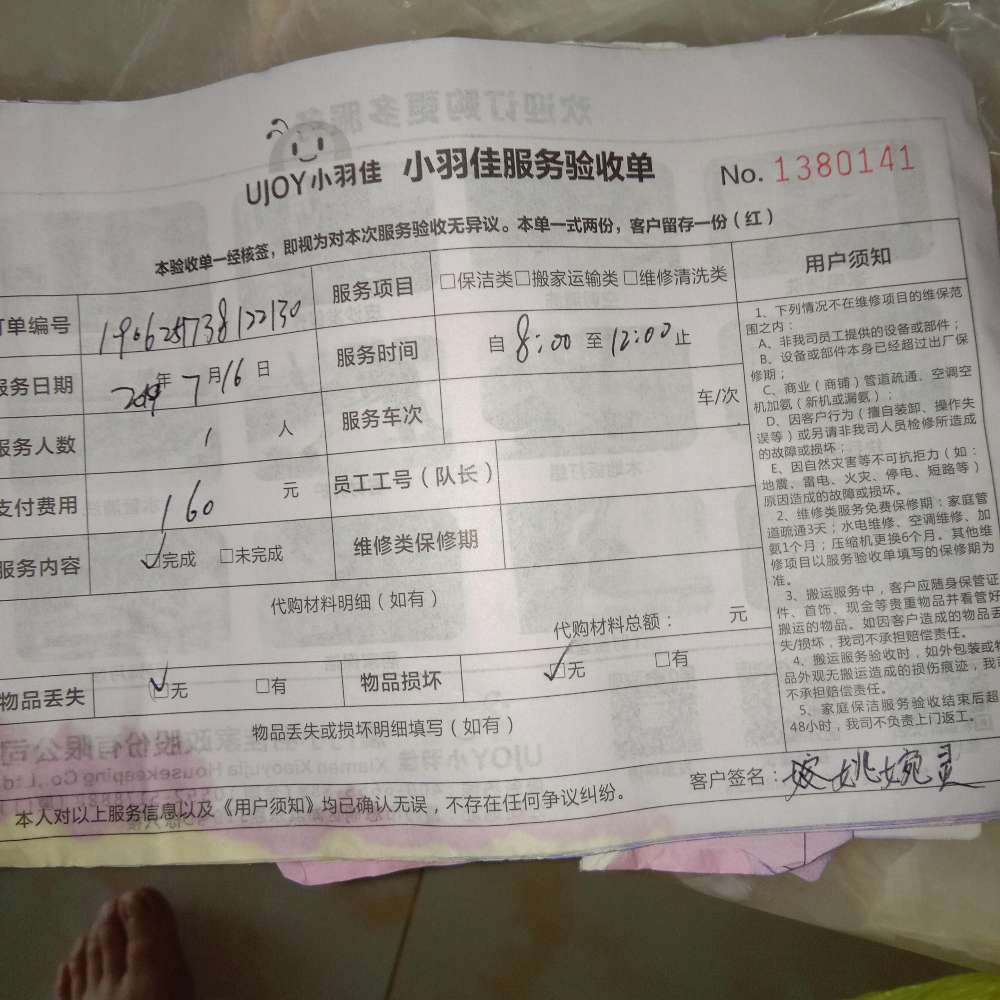 UJOY小羽佳 小羽佳服务验收单 No. 1380141
本验收单一经核签，即视为对本次服务验收无异议。本单一式两份，客户留存一份（红）
订单编号 190625738122130 服务项目 □保洁类□搬家运输类□维修清洗类
服务日期 2019年7月16日 服务时间 自8:00至12:00止
服务人数 1 人 服务车次 车/次
支付费用 160 元 员工工号（队长）
服务内容 ☑完成 □未完成 维修类保修期
代购材料明细（如有）
代购材料总额： 元
物品丢失 ☑无 □有 物品损坏 ☑无 □有
物品丢失或损坏明细填写（如有）
本人对以上服务信息以及《用户须知》均已确认无误，不存在任何争议纠纷。
客户签名：姚婉灵
用户须知
1、下列情况不在维修项目的维保范
围之内：
A、非我司员工提供的设备或部件；
B、设备或部件本身已经超过出厂保
修期；
C、商业（商铺）管道疏通、空调空
机加氨（新机或漏氨）；
D、因客户行为（擅自装卸、操作失
误等）或另请非我司人员检修所造成
的故障或损坏；
E、因自然灾害等不可抗拒力（如：
地震、雷电、火灾、停电、短路等）
原因造成的故障或损坏。
2、维修类服务免费保修期：家庭管
道疏通3天；水电维修、空调维修、加
氨1个月；压缩机更换6个月。其他维
修项目以服务验收单填写的保修期为
准。
3、搬运服务中，客户应随身保管证
件、首饰、现金等贵重物品并看管好
搬运的物品。如因客户造成的物品丢
失/损坏，我司不承担赔偿责任。
4、搬运服务验收时，如外包装或物
品外观无搬运造成的损伤痕迹，我司
不承担赔偿责任。
5、家庭保洁服务验收结束后超
48小时，我司不负责上门返工。